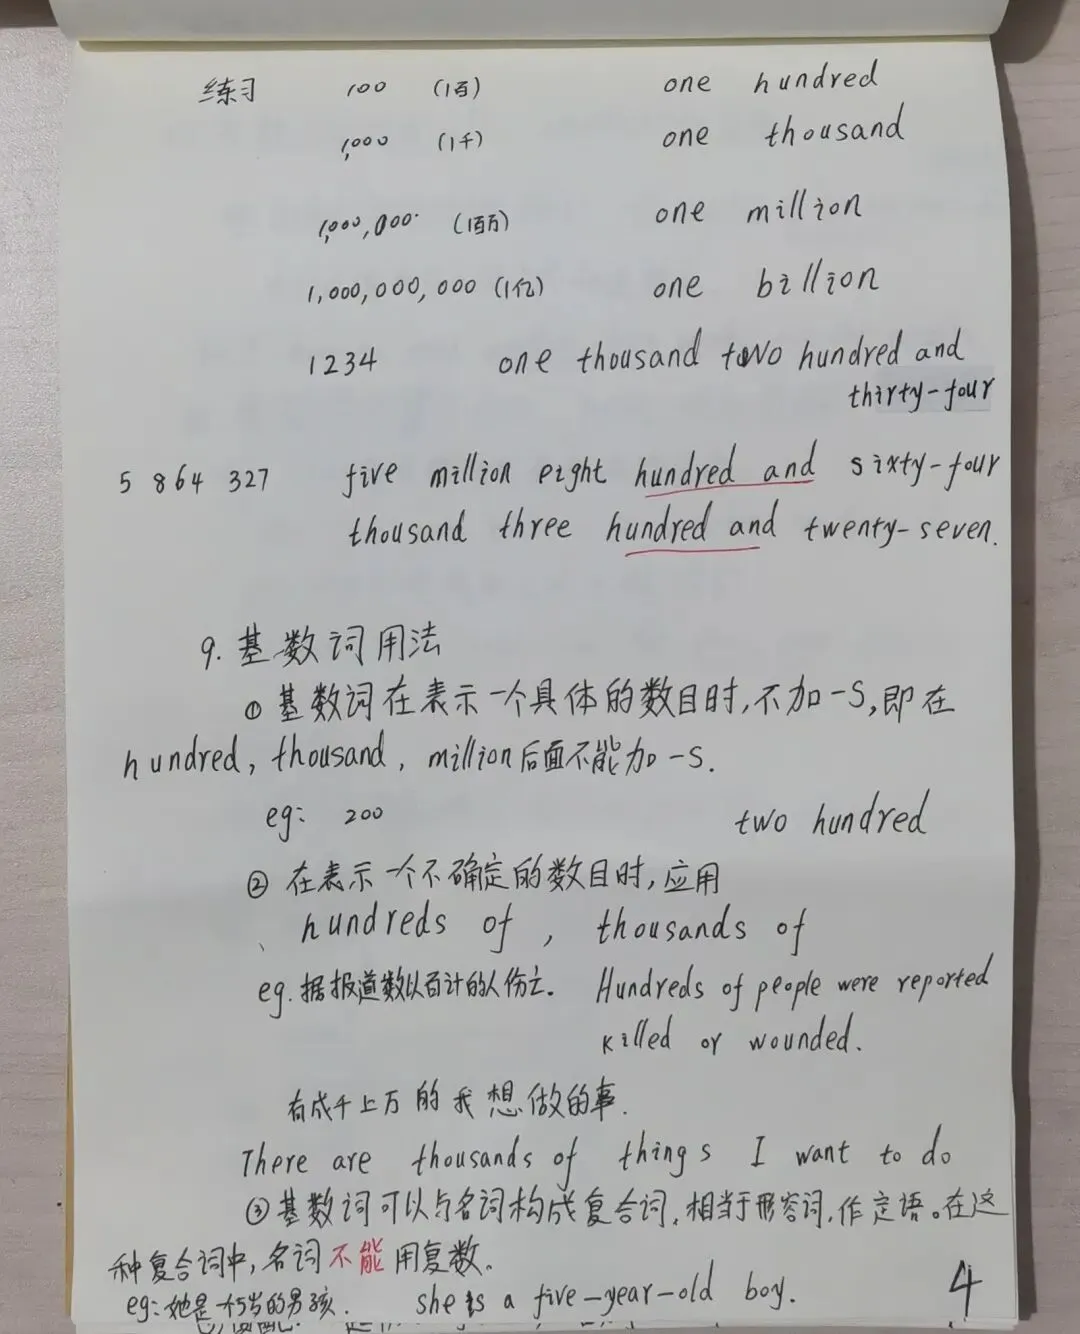 练习 100 (1百) one hundred
1,000 (1千) one thousand
1,000,000 (1百万) one million
1,000,000,000 (1亿) one billion
1234 one thousand two hundred and
thirty-four
5 864 327 five million eight hundred and sixty-four
thousand three hundred and twenty-seven.
9. 基数词用法
① 基数词在表示一个具体的数目时,不加-S,即在
hundred, thousand, million后面不能加-S.
eg: 200 two hundred
② 在表示一个不确定的数目时,应用
hundreds of , thousands of
eg. 据报道数以百计的人伤亡. Hundreds of people were reported
killed or wounded.
有成千上万的我想做的事.
There are thousands of things I want to do
③ 基数词可以与名词构成复合词,相当于形容词,作定语。在这
种复合词中,名词不能用复数。
eg: 她是一个5岁的男孩. she is a five-year-old boy.
4